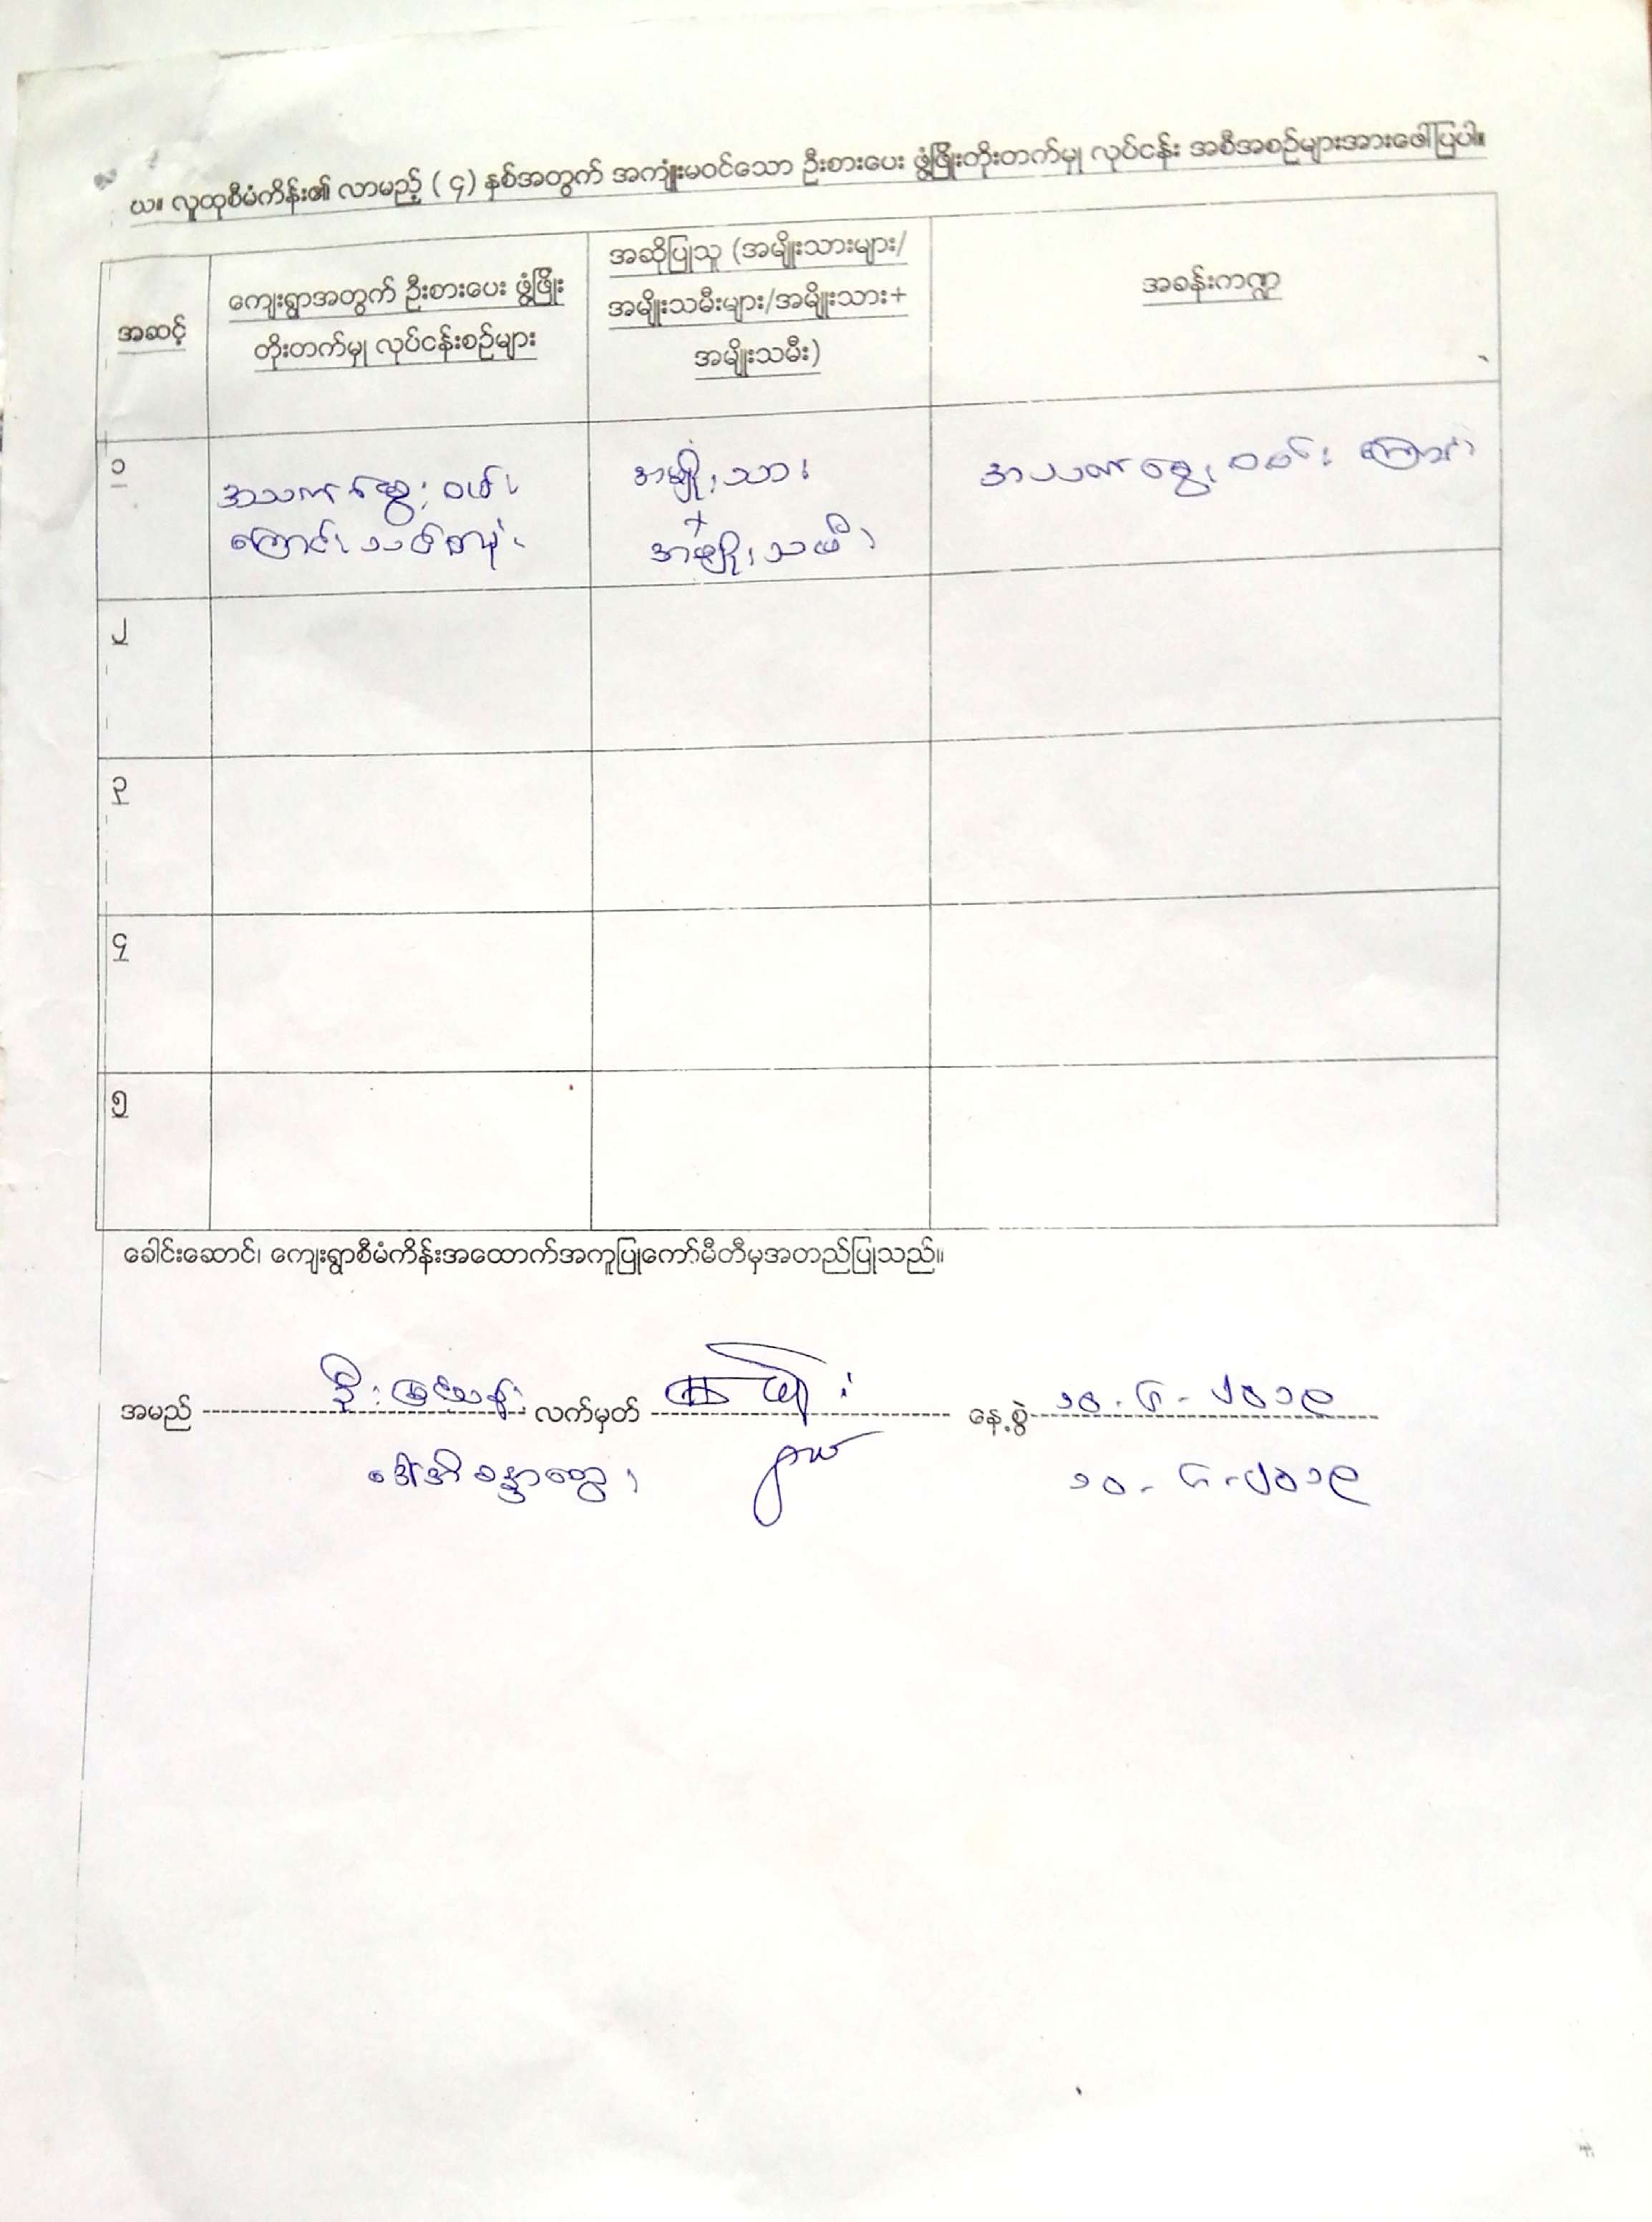 ဃ။ လူထုစီမံကိန်း၏ လာမည့် ( ၄ ) နှစ်အတွက် အကျုံးမဝင်သော ဦးစားပေး ဖွံ့ဖြိုးတိုးတက်မှု လုပ်ငန်း အစီအစဉ်များအားဖေါ်ပြပါ။
အဆင့်
ကျေးရွာအတွက် ဦးစားပေး ဖွံ့ဖြိုး
တိုးတက်မှု လုပ်ငန်းစဉ်များ
အဆိုပြုသူ (အမျိုးသားများ/
အမျိုးသမီးများ/အမျိုးသား+
အမျိုးသမီး)
အခန်းကဏ္ဍ
၁
အသက်မွေး ဝမ်း
ကျောင်း သင်တန်း
အမျိုးသား
+
အမျိုးသမီး
အသက်မွေး ဝမ်း ကျောင်း
၂
၃
၄
၅
ခေါင်းဆောင်၊ ကျေးရွာစီမံကိန်းအထောက်အကူပြုကော်မီတီမှအတည်ပြုသည်။
အမည် ဦးမြင့်သန်း လက်မှတ် နေ့စွဲ ၁၀ . ၆ - ၂၀၁၉
၁၀ . ၆ - ၂၀၁၉